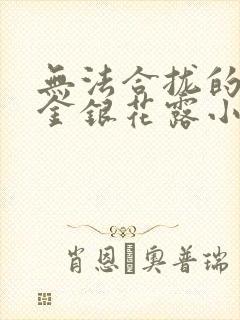 無法合拢的
金銀花露小
肖恩·奧普瑞